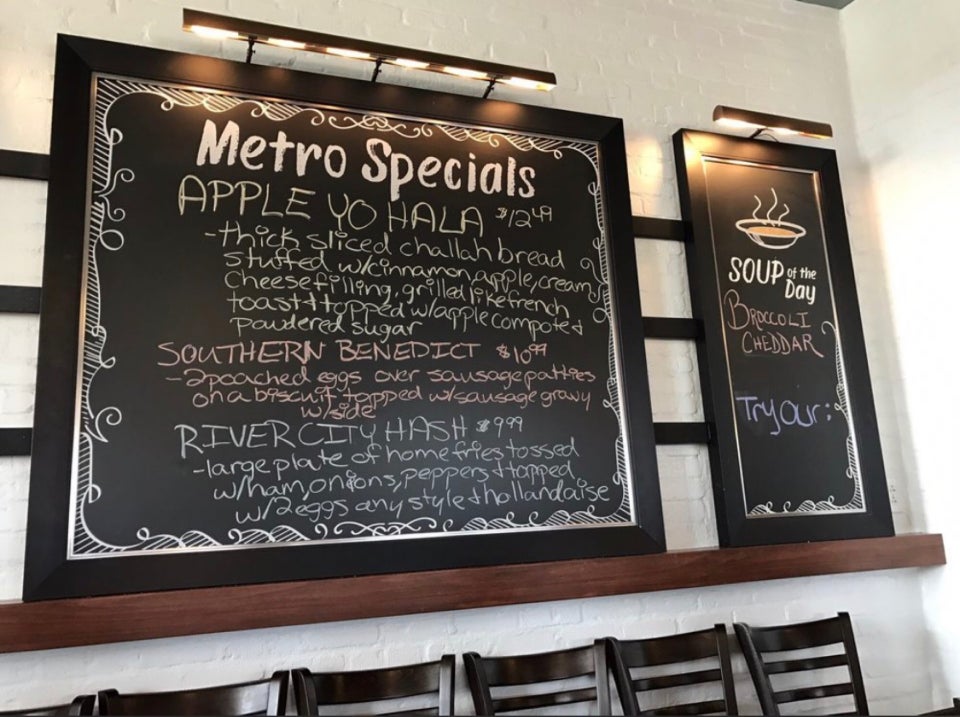 Metro Specials
APPLE YO HALA $12.49
-thick sliced challah bread
stuffed w/cinnamon, apple, cream
cheese filling, grilled like french
toast + topped w/apple compote +
powdered sugar
SOUTHERN BENEDICT $10.99
-2 poached eggs over sausage patties
on a biscuit topped w/sausage gravy
w/side
RIVER CITY HASH $9.99
-large plate of homefries tossed
w/ham, onions, peppers + topped
w/2 eggs any style + hollandaise
SOUP of the
Day
BROCCOLI
CHEDDAR
Try Our: